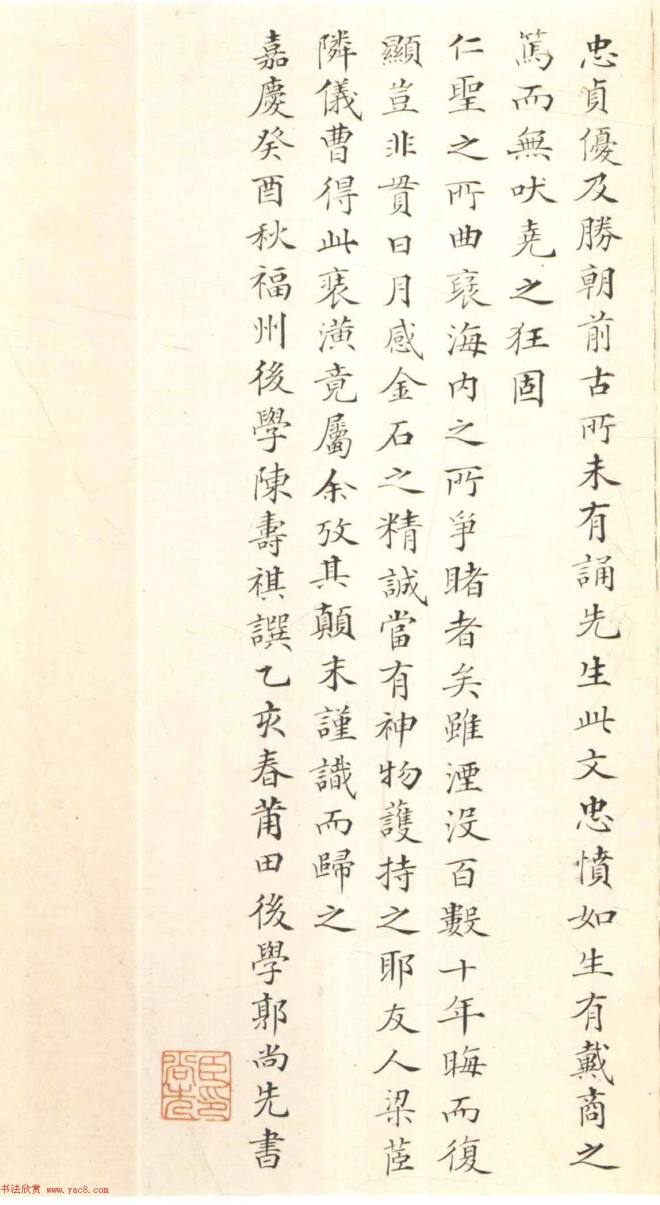 忠貞優及勝朝前古所未有誦先生此文忠憤如生有戴商之
篤而無吠堯之狂固
仁聖之所曲褒海内之所爭睹者矣雖湮没百數十年晦而復
顯豈非貫日月感金石之精誠當有神物護持之耶友人梁茝
隣儀曹得此裘潢竟屬余攷其顛末謹識而歸之
嘉慶癸酉秋福州後學陳壽祺譔乙亥春莆田後學郭尚先書
臣印尚先
书法欣赏 www.yac8.com